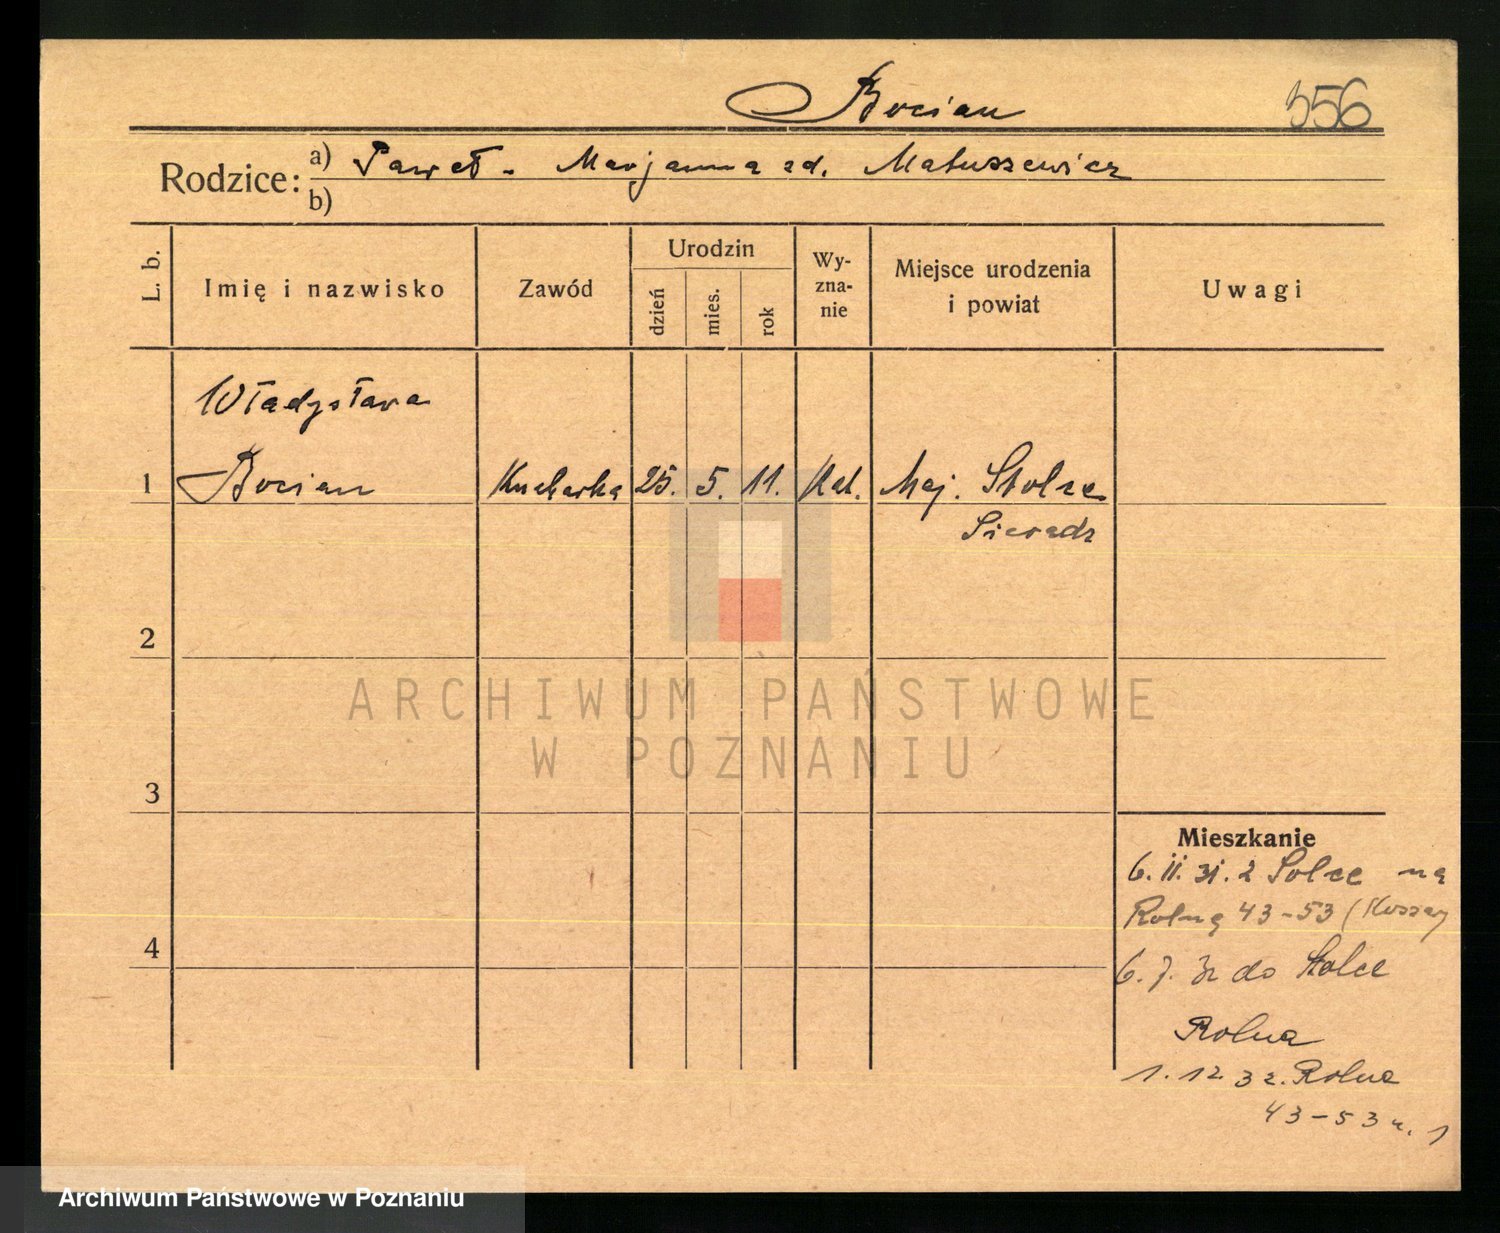 Bocian
356
Rodzice: a) Paweł - Marjanna zd. Matuszewicz
b)
L. b.
Imię i nazwisko
Zawód
Urodzin
dzień
mies.
rok
Wy-
zna-
nie
Miejsce urodzenia
i powiat
Uwagi
Władysława
1 Bocian Kucharka 25. 5. 11. Kat. Maj. Stolce
Sieradz
2
3
4
ARCHIWUM PAŃSTWOWE
W POZNANIU
Mieszkanie
6. 11. 31. z Solce na
Rolną 43-53 (Koszary
6. 7. 32 do Stolce
Rolna
1. 12 32. Rolna
43-53 1
Archiwum Państwowe w Poznaniu